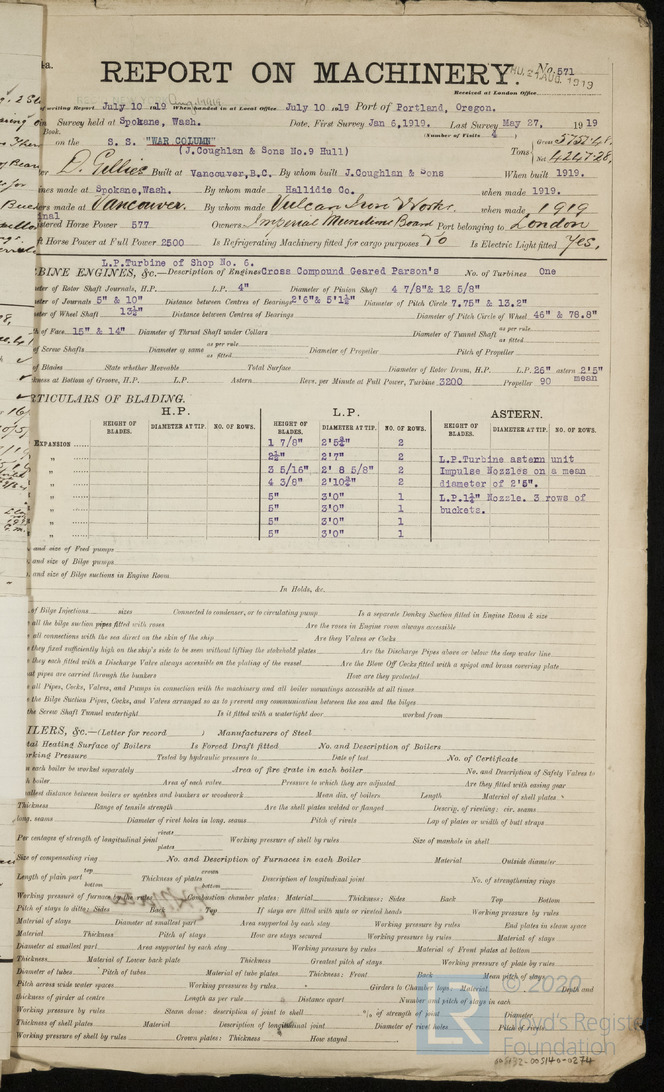 4a.
REPORT ON MACHINERY.
No. 571
THU. 21 AUG. 1919
Received at London Office
of writing Report July 10 1919 When handed in at Local Office July 10 1919 Port of Portland, Oregon.
Survey held at Spokane, Wash. Date, First Survey Jan 6, 1919. Last Survey May 27, 1919
Book.
(Number of Visits 4
on the S. S. "WAR COLUMN"
(J.Coughlan & Sons No.9 Hull)
Tons Gross 5752.48
Net 4247.28
D. Gillies Built at Vancouver,B.C. By whom built J.Coughlan & Sons When built 1919.
ines made at Spokane,Wash. By whom made Hallidie Co. when made 1919.
ers made at Vancouver. By whom made Vulcan Iron Works. when made 1919
inal
istered Horse Power 577 Owners Imperial Munitions Board Port belonging to London
ft Horse Power at Full Power 2500 Is Refrigerating Machinery fitted for cargo purposes No Is Electric Light fitted Yes.
L.P.Turbine of Shop No. 6.
BINE ENGINES, &c.—Description of Engines Cross Compound Geared Parson's No. of Turbines One
eter of Rotor Shaft Journals, H.P. L.P. 4" Diameter of Pinion Shaft 4 7/8"& 12 5/8"
eter of Journals 5" & 10" Distance between Centres of Bearings 2'6"& 5'1¼" Diameter of Pitch Circle 7.75" & 13.2"
eter of Wheel Shaft 13½" Distance between Centres of Bearings Diameter of Pitch Circle of Wheel 46" & 78.8"
th of Face 15" & 14" Diameter of Thrust Shaft under Collars Diameter of Tunnel Shaft as per rule
as fitted
of Screw Shafts Diameter of same as per rule
as fitted Diameter of Propeller Pitch of Propeller
of Blades State whether Moveable Total Surface Diameter of Rotor Drum, H.P. L.P. 26" astern 2'5"
mean
kness at Bottom of Groove, H.P. L.P. Astern Revs. per Minute at Full Power, Turbine 3200 Propeller 90
RTICULARS OF BLADING.
H.P. L.P. ASTERN.
HEIGHT OF BLADES. DIAMETER AT TIP. NO. OF ROWS. HEIGHT OF BLADES. DIAMETER AT TIP. NO. OF ROWS. HEIGHT OF BLADES. DIAMETER AT TIP. NO. OF ROWS.
EXPANSION 1 7/8" 2'5¾" 2
" 2½" 2'7" 2 L.P.Turbine astern unit
" 3 5/16" 2' 8 5/8" 2 Impulse Nozzles on a mean
" 4 3/8" 2'10¾" 2 diameter of 2'5".
" 5" 3'0" 1 L.P.1¼" Nozzle. 3 rows of
" 5" 3'0" 1 buckets.
" 5" 3'0" 1
" 5" 3'0" 1
and size of Feed pumps
and size of Bilge pumps
and size of Bilge suctions in Engine Room
In Holds, &c.
of Bilge Injections sizes Connected to condenser, or to circulating pump Is a separate Donkey Suction fitted in Engine Room & size
all the bilge suction pipes fitted with roses Are the roses in Engine room always accessible
all connections with the sea direct on the skin of the ship Are they Valves or Cocks
they fixed sufficiently high on the ship's side to be seen without lifting the stokehold plates Are the Discharge Pipes above or below the deep water line
they each fitted with a Discharge Valve always accessible on the plating of the vessel Are the Blow Off Cocks fitted with a spigot and brass covering plate
at pipes are carried through the bunkers How are they protected
all Pipes, Cocks, Valves, and Pumps in connection with the machinery and all boiler mountings accessible at all times
the Bilge Suction Pipes, Cocks, and Valves arranged so as to prevent any communication between the sea and the bilges
the Screw Shaft Tunnel watertight Is it fitted with a watertight door worked from
ILERS, &c.—(Letter for record ) Manufacturers of Steel
tal Heating Surface of Boilers Is Forced Draft fitted No. and Description of Boilers
orking Pressure Tested by hydraulic pressure to Date of test No. of Certificate
each boiler be worked separately Area of fire grate in each boiler No. and Description of Safety Valves to
h boiler Area of each valve Pressure to which they are adjusted Are they fitted with easing gear
allest distance between boilers or uptakes and bunkers or woodwork Mean dia. of boilers Length Material of shell plates
Thickness Range of tensile strength Are the shell plates welded or flanged Descrip. of riveting: cir. seams
long. seams Diameter of rivet holes in long. seams Pitch of rivets Lap of plates or width of butt straps
Per centages of strength of longitudinal joint rivets
plates Working pressure of shell by rules Size of manhole in shell
Size of compensating ring No. and Description of Furnaces in each Boiler Material Outside diameter
Length of plain part top
bottom Thickness of plates crown
bottom Description of longitudinal joint No. of strengthening rings
Working pressure of furnace by the rules Combustion chamber plates: Material Thickness: Sides Back Top Bottom
Pitch of stays to ditto: Sides Back Top If stays are fitted with nuts or riveted heads Working pressure by rules
Material of stays Diameter at smallest part Area supported by each stay Working pressure by rules End plates in steam space
Material Thickness Pitch of stays How are stays secured Working pressure by rules Material of stays
Diameter at smallest part Area supported by each stay Working pressure by rules Material of Front plates at bottom
Thickness Material of Lower back plate Thickness Greatest pitch of stays Working pressure of plate by rules
Diameter of tubes Pitch of tubes Material of tube plates Thickness: Front Back Mean pitch of stays
Pitch across wide water spaces Working pressures by rules Girders to Chamber tops: Material Depth and
thickness of girder at centre Length as per rule Distance apart Number and pitch of stays in each
Working pressure by rules Steam dome: description of joint to shell % of strength of joint Diameter
Thickness of shell plates Material Description of longitudinal joint Diameter of rivet holes Pitch of rivets
Working pressure of shell by rules Crown plates: Thickness How stayed
© 2020
Lloyd's Register
Foundation
LR
005132-005140-0274